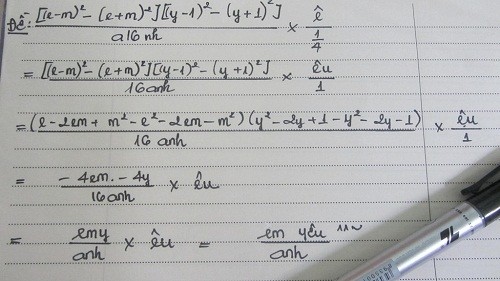 Đề: [(e-m)² - (e+m)²][(y-1)² - (y+1)²] / a16nh × ê / (1/4)
= [(e-m)² - (e+m)²][(y-1)² - (y+1)²] / 16anh × êu / 1
= (e - 2em + m² - e² - 2em - m²) (y² - 2y + 1 - y² - 2y - 1) / 16 anh × êu / 1
= - 4em . - 4y / 16anh × êu
= emy / anh × êu = em yêu / anh